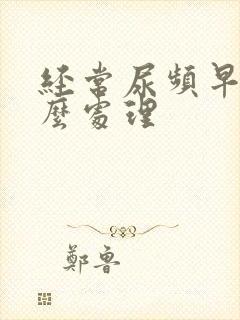 經常尿頻早
麼處理
鄭魯